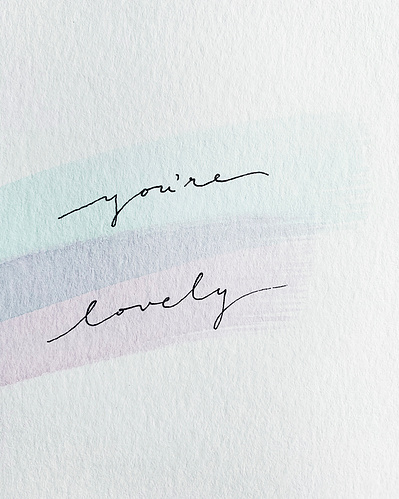 you're
lovely